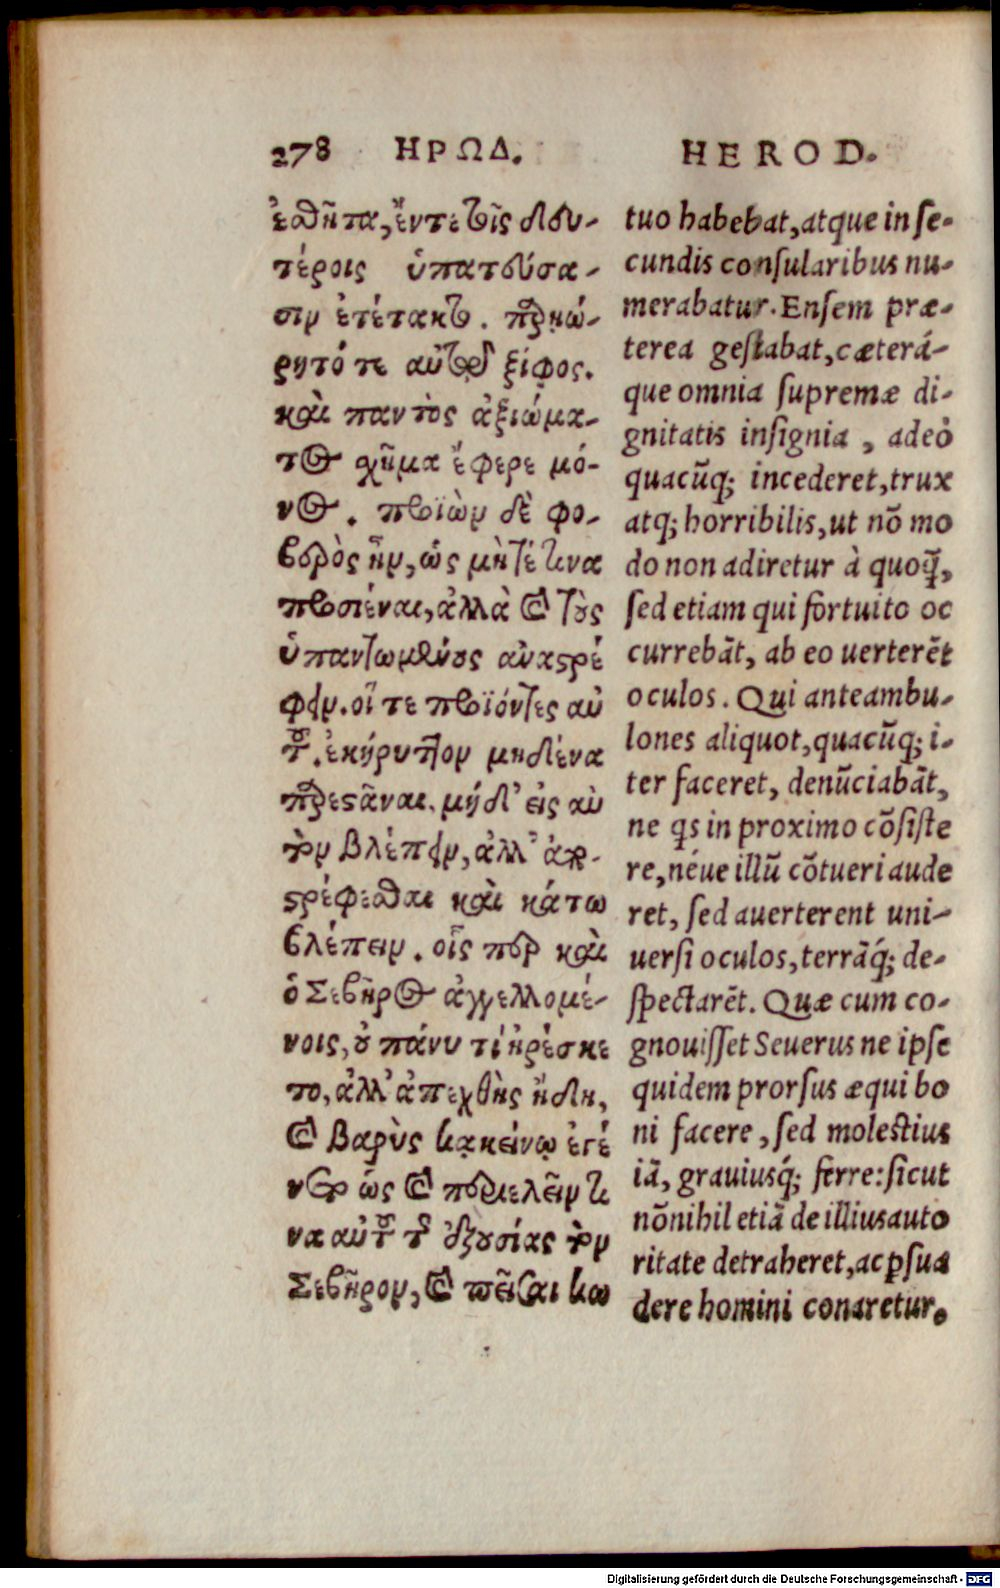 278 ΗΡΩΔ.
ἐσθῆτα, ἔν τε τοῖς δευ-
τέροις ὑπατεύσα-
σιν ἐτέτακτο. παρῃώ-
ρητό τε αὐτοῦ ξίφος.
καὶ παντὸς ἀξιώμα-
τος σχῆμα ἔφερε μό-
νος. προϊὼν δὲ φο-
βερὸς ἦν, ὡς μήτέ τινα
προσιέναι, ἀλλὰ καὶ τοὺς
ὑπαντωμένους ἀναστρέ
φειν. οἵ τε προϊόντες αὐ
τοῦ. ἐκήρυττον μηδένα
παρεστᾶναι. μήδ' εἰς αὐ
τὸν βλέπειν, ἀλλ' ἀπο-
στρέφεσθαι καὶ κάτω
βλέπειν. οἷς περ καὶ
ὁ Σεβῆρος ἀγγελλομέ-
νοις, οὐ πάνυ τί ἠρέσκε
το, ἀλλ' ἀπεχθὴς ἤδη,
καὶ βαρὺς κᾀκείνῳ ἐγέ
νετο ὡς καὶ περιελεῖν τι
να αὐτοῦ τῆς ἐξουσίας τὸν
Σεβῆρον, καὶ πεῖσαι κω
HEROD.
tuo habebat, atque in se-
cundis consularibus nu-
merabatur. Ensem præ-
terea gestabat, cæterá-
que omnia supremæ di-
gnitatis insignia, adeò
quacũq; incederet, trux
atq; horribilis, ut nõ mo
do non adiretur à quoq̃,
sed etiam qui fortuito oc
currebãt, ab eo uerterẽt
oculos. Qui anteambu-
lones aliquot, quacũq; i-
ter faceret, denũciabãt,
ne qs in proximo cõsiste
re, néue illũ cõtueri aude
ret, sed auerterent uni-
uersi oculos, terrãq́; de-
spectarẽt. Quæ cum co-
gnouisset Seuerus ne ipse
quidem prorsus æqui bo
ni facere, sed molestius
iã, grauiusq́; ferre: sicut
nõnihil etiã de illius auto
ritate detraheret, ac ꝑsua
dere homini conaretur.
Digitalisierung gefördert durch die Deutsche Forschungsgemeinschaft - DFG